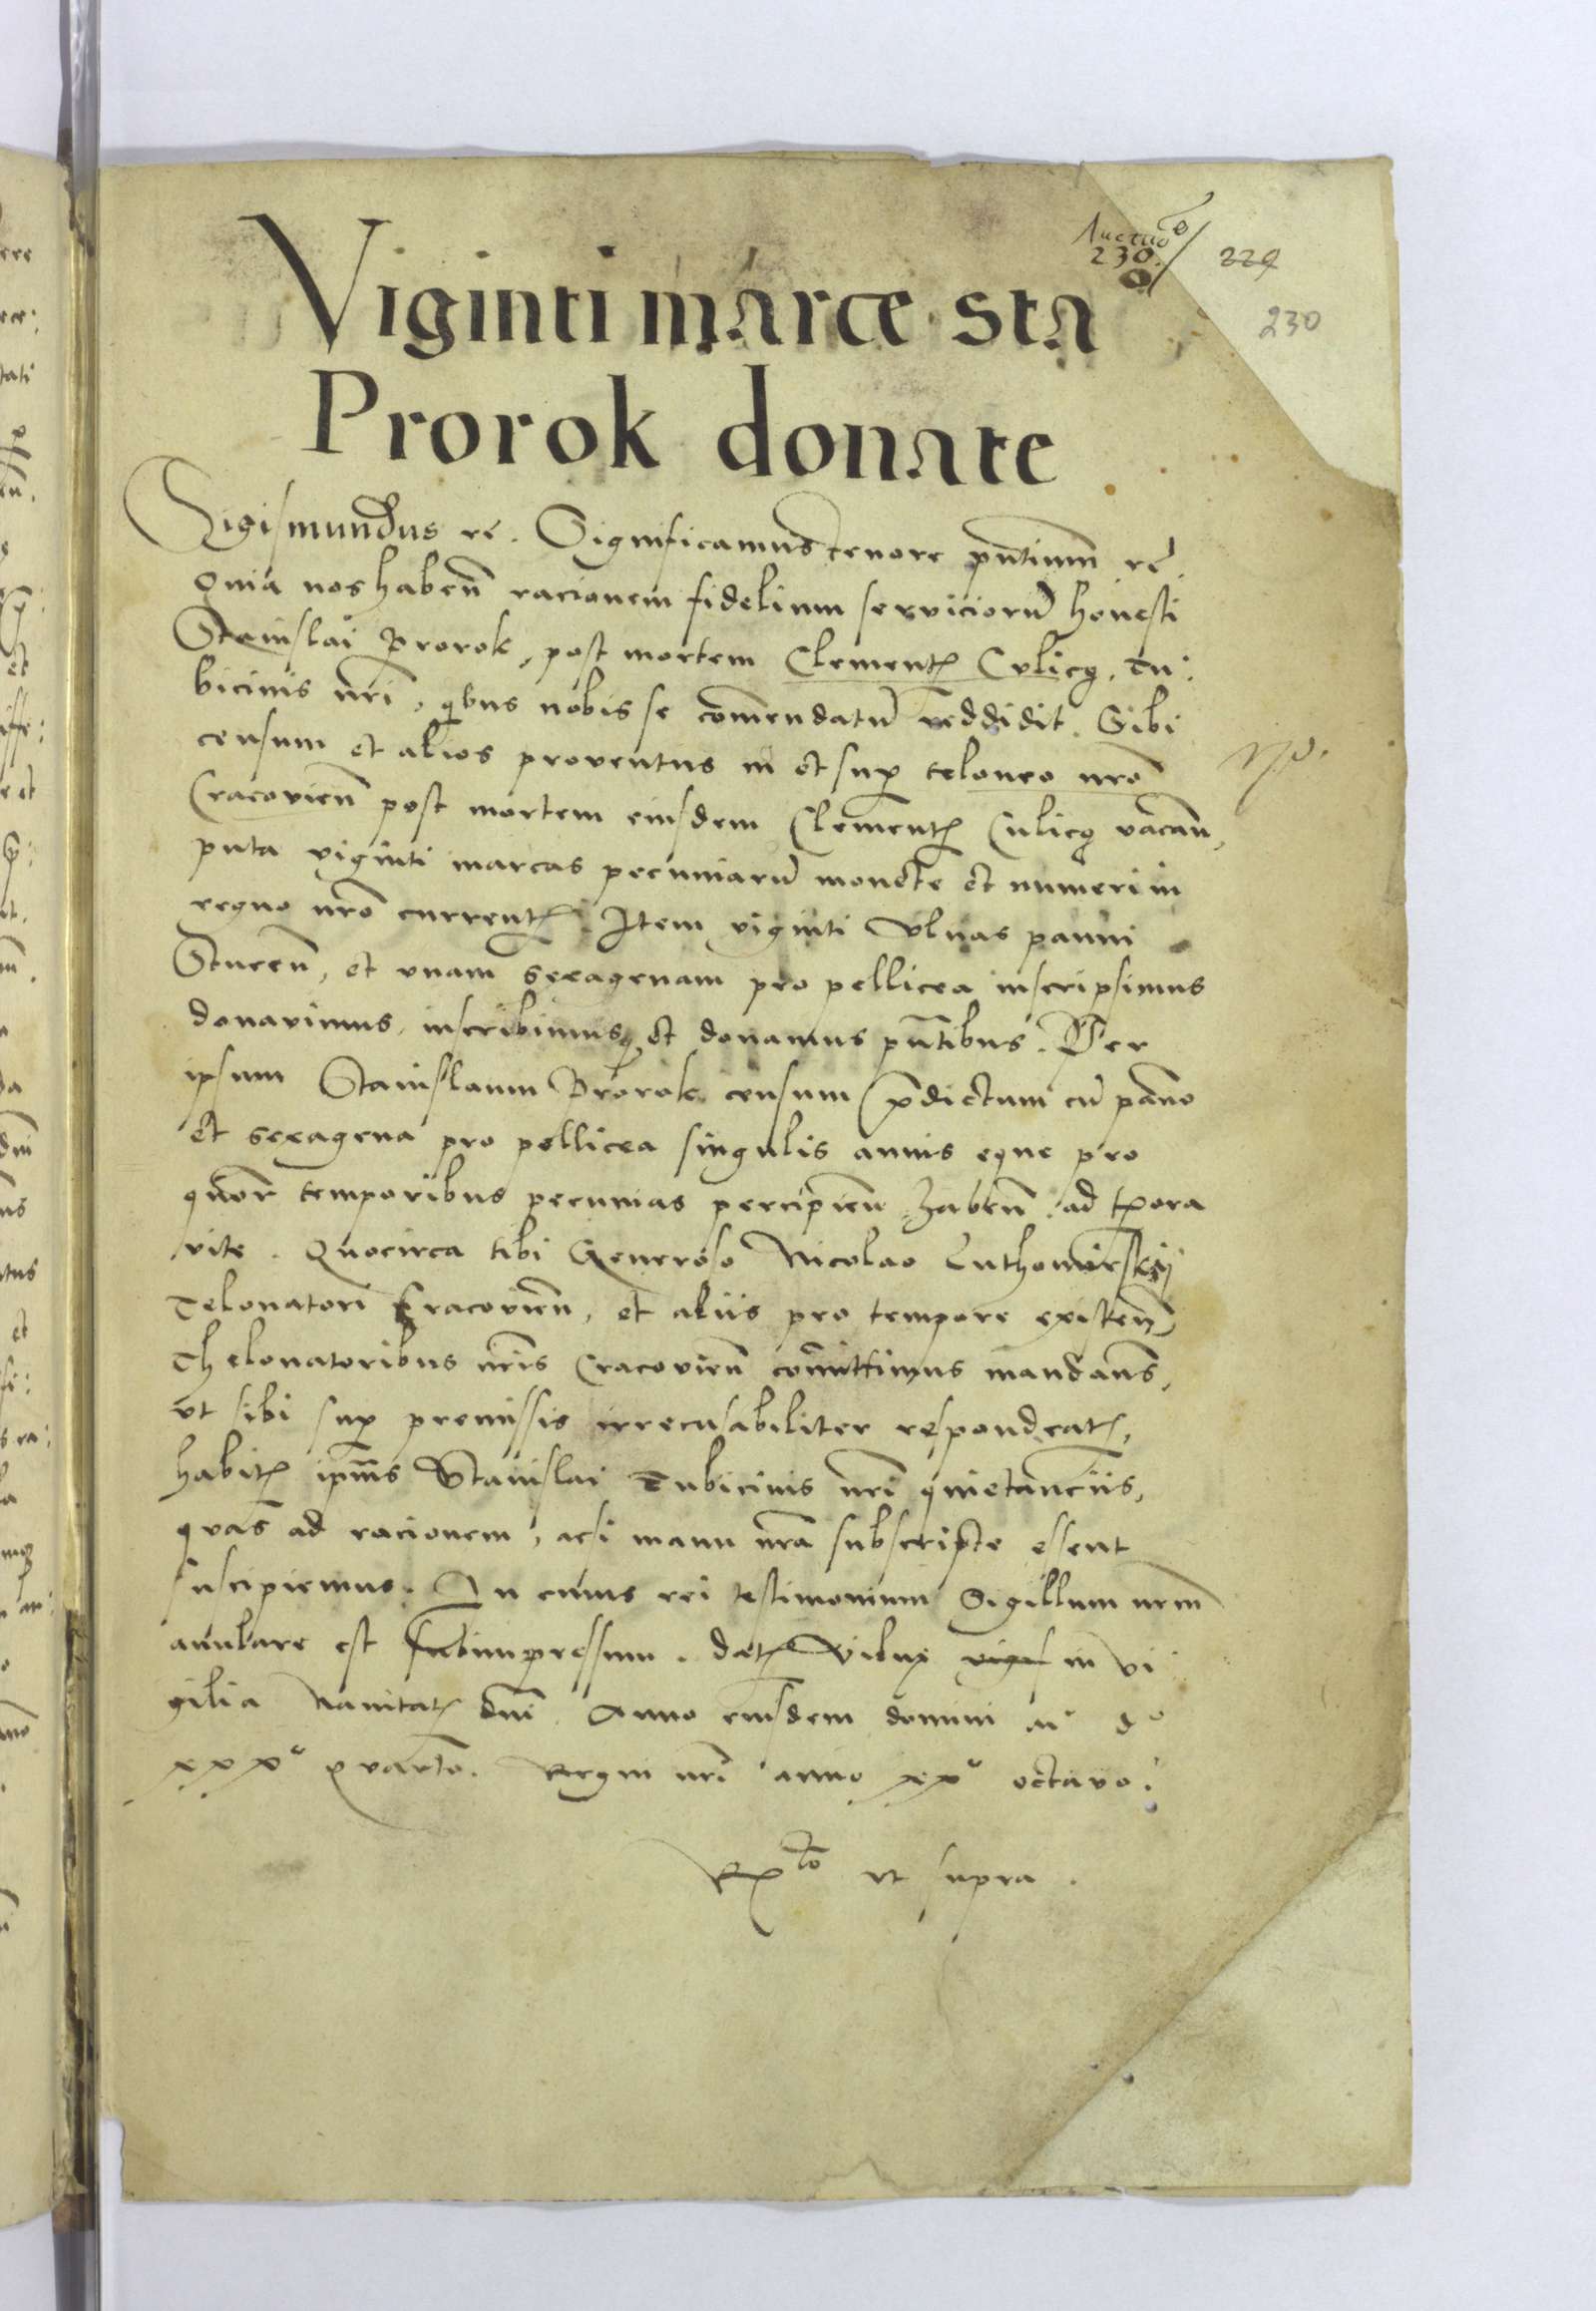 230.
229
230
Viginti marce sta
Prorok donate
Sigismundus rc. Significamus tenore pñtium rc.
Quia nos habeñ racionem fidelium serviciorũ honesti
Stanislai Prorok, post mortem Clementꝭ Culicȝ, tu:
bicinis nr̃i, qbus nobis se com̃endatũ reddidit. Sibi
censum et alios proventus in et sup teloneo nr̃o
Cracovieñ post mortem eiusdem Clementꝭ Culicȝ vacañ,
puta viginti marcas pecuniarũ monete et numeri in
regno nr̃o currentꝭ. Item viginti Ulnas panni
Stuceñ, et unam sexagenam pro pellicea inscripsimus
donavimus, inscribimusqȝ et donamus pñtibus. Per
ipsum Stanislaum Prorok censum p̃dictum cũ pãno
et sexagena pro pellicea singulis annis eque pro
quor̃ temporibus pecunias percipieñ habeñ. ad tꝑora
vite. Quocirca tibi Generoso Nicolao Luthomirskij
Telonatori Cracovieñ, et aliis pro tempore existeñ,
Thelonatoribus nr̃is Cracovieñ com̃ittimus mandañs,
ut sibi sup premissis irrecusabiliter respondeatꝭ,
habitꝭ ipm̃s Stanislai Tubicinis nr̃i quietanciis,
quas ad racionem, acsi manu nr̃a subscripte essent
suscipiemus. In cuius rei testimonium Sigillum nr̃m
annulare est subimpressum. datꝭ Vilnę vigi in vi
gilia Nativitatꝭ dñi. Anno eiusdem domini Mº dº
xxxº quarto. Regni nr̃i anno xxº octavo.
Rꝭto ut supra.